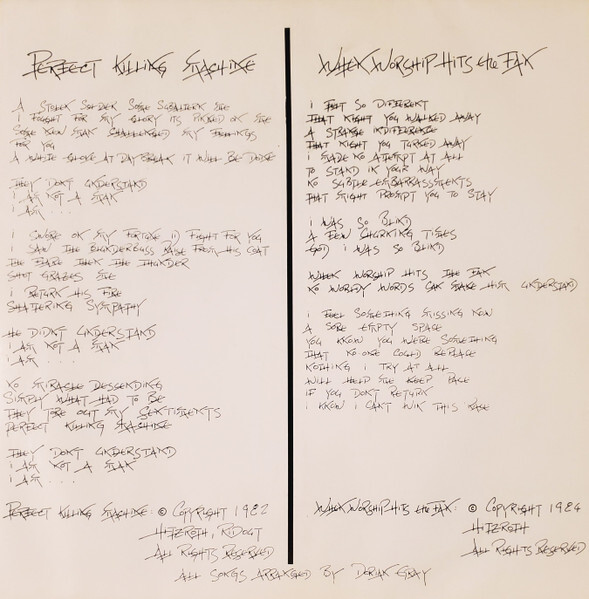 PERFECT KILLING MACHINE
A STOLEN SOLDIER SOME SUBALTERN ME
I FOUGHT FOR MY GLORY ITS PICKED ON ME
SOME NEW MAN CHALLENGED MY FEELINGS
FOR YOU
A WHITE GLOVE AT DAYBREAK IT WILL BE DONE
THEY DON'T UNDERSTAND
I AM NOT A MAN
I AM . . . .
I SWORE ON MY FORTUNE I'D FIGHT FOR YOU
I SAW THE BLUNDERBUSS RISE FROM HIS COAT
THE THEN THE THUNDER
SHOT GRAZES ME
I RETURN HIS FIRE
SHATTERING SYMPATHY
HE DIDN'T UNDERSTAND
I AM NOT A MAN
I AM . . . .
NO MIRACLE DESCENDING
SIMPLY WHAT HAD TO BE
THEY TORE OUT MY SENTIMENTS
PERFECT KILLING MACHINE
THEY DON'T UNDERSTAND
I AM NOT A MAN
I AM . . . .
PERFECT KILLING MACHINE: © COPYRIGHT 1982
HITZROTH, RIDOUT
ALL RIGHTS RESERVED
WHEN WORSHIP HITS the FAN
I FELT SO DIFFERENT
THAT NIGHT YOU WALKED AWAY
A STRANGE INDIFFERENCE
THAT NIGHT YOU TURNED AWAY
I MADE NO ATTEMPT AT ALL
TO STAND IN YOUR WAY
NO SUBTLE EMBARRASSMENTS
THAT MIGHT PROMPT YOU TO STAY
I WAS SO BLIND
A FEW CHARMING TIMES
GOD I WAS SO BLIND
WHEN WORSHIP HITS THE FAN
NO WORLDLY WORDS CAN MAKE HIM UNDERSTAND
I FEEL SOMETHING MISSING NOW
A SORE EMPTY SPACE
YOU KNOW YOU WERE SOMETHING
THAT NO-ONE COULD REPLACE
NOTHING I TRY AT ALL
WILL HELP ME KEEP PACE
IF YOU DON'T RETURN
I KNOW I CAN'T WIN THIS RACE
WHEN WORSHIP HITS the FAN: © COPYRIGHT 1984
HITZROTH
ALL RIGHTS RESERVED
ALL SONGS ARRANGED BY DORIAN GRAY